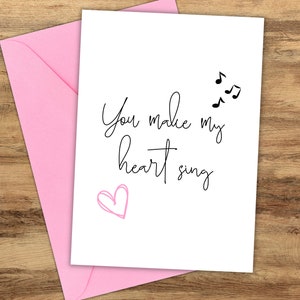 You make my
heart sing